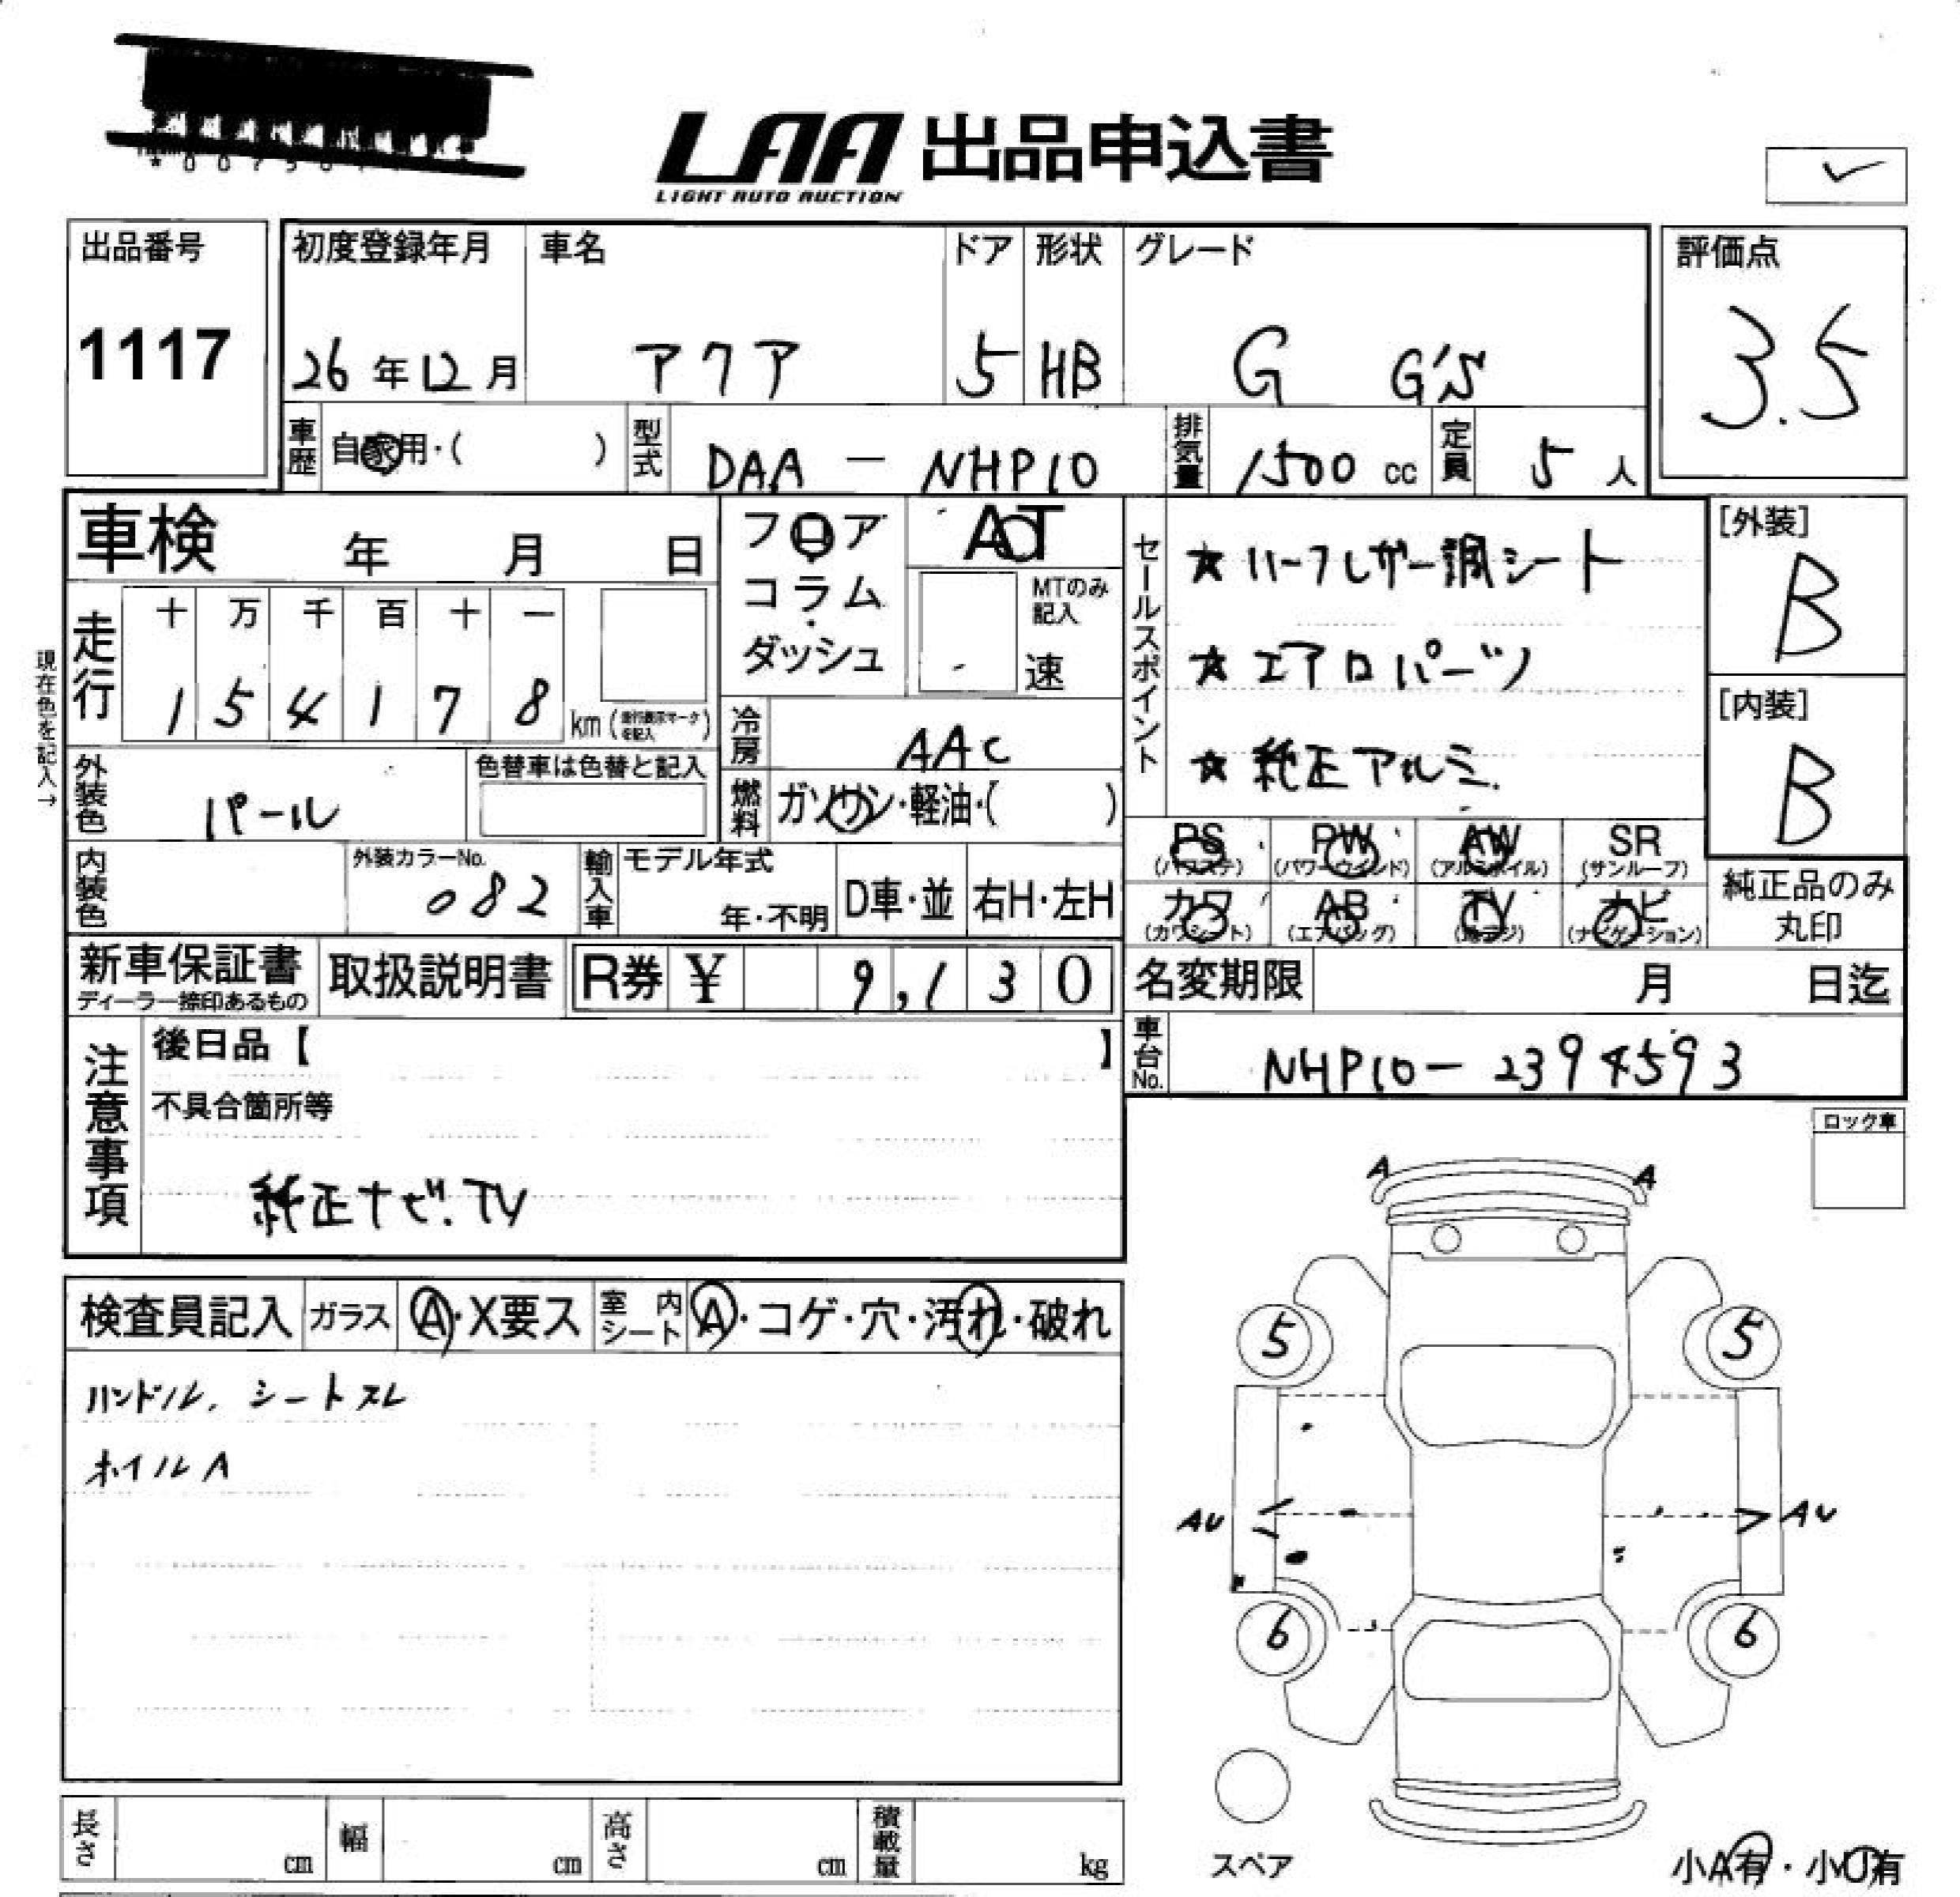 LAA 出品申込書
LIGHT AUTO AUCTION
出品番号
1117
初度登録年月
26年12月
車名
アクア
ドア
5
形状
HB
グレード
G G'S
評価点
3.5
車歴
自家用・( )
型式
DAA - NHP10
排気量
1500 cc
定員
5人
車検 年 月 日
フロア
コラム
・
ダッシュ
AT
MTのみ
記入
速
セールスポイント
★ ハーフレザー調シート
★ エアロパーツ
★ 純正アルミ.
[外装]
B
[内装]
B
現在色を記入→
走行
十 万 千 百 十 一
1 5 4 1 7 8 km (走行表示マークを記入)
冷房
AAC
外装色
パール
色替車は色替と記入
燃料
ガソリン・軽油・( )
PS
(パワステ)
PW
(パワーウィンド)
AW
(アルミホイル)
SR
(サンルーフ)
カワ
(カワシート)
AB
(エアバッグ)
TV
(地デジ)
ナビ
(ナビゲーション)
純正品のみ
丸印
内装色
外装カラーNo.
082
輸入車
モデル年式
年・不明
D車・並
右H・左H
新車保証書
ディーラー捺印あるもの
取扱説明書
R券 ¥ 9,130
名変期限 月 日迄
車台No.
NHP10-2394593
注意事項
後日品【 】
不具合箇所等
純正ナビ.TV
ロック車
A A
5 5
AU AU
6 6
スペア
小A有・小U有
検査員記入 ガラス A・X要ス 室内シート A・コゲ・穴・汚れ・破れ
ハンドル、シートスレ
ホイルA
長さ cm 幅 cm 高さ cm 積載量 kg